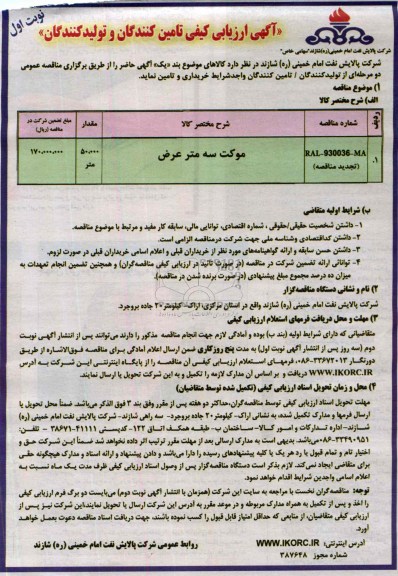 نوبت اول
«آگهی ارزیابی کیفی تامین کنندگان و تولیدکنندگان»
شرکت پالایش نفت امام خمینی (ره) شازند "سهامی خاص"
شرکت پالایش نفت امام خمینی (ره) شازند در نظر دارد کالاهای موضوع بند «یک» آگهی حاضر را از طریق برگزاری مناقصه عمومی
دو مرحله‌ای از تولیدکنندگان / تامین کنندگان واجدشرایط خریداری و تامین نماید.
۱) موضوع مناقصه
الف) شرح مختصر کالا
ردیف شماره مناقصه شرح مختصر کالا مقدار مبلغ تضمین شرکت در مناقصه (ریال)
۱. RAL-930036-MA (تجدید مناقصه) موکت سه متر عرض ۵۰،۰۰۰ متر ۱۷۰،۰۰۰،۰۰۰
ب) شرایط اولیه متقاضی
۱- داشتن شخصیت حقیقی/حقوقی ، شماره اقتصادی، توانایی مالی، سابقه کار مفید و مرتبط با موضوع مناقصه.
۲- داشتن کداقتصادی وشناسه ملی جهت شرکت درمناقصه الزامی است.
۳- داشتن حسن سابقه و ارائه گواهینامه‌های مورد نظر از خریداران قبلی و اعلام اسامی خریداران قبلی در صورت لزوم.
۴- توانائی ارائه تضمین شرکت در مناقصه (در صورت تائید در ارزیابی کیفی مناقصه‌گران) و همچنین تضمین انجام تعهدات به
میزان ده درصد مجموع مبلغ پیشنهادی (در صورت برنده شدن در مناقصه).
۲) نام و نشانی دستگاه مناقصه‌گزار
شرکت پالایش نفت امام خمینی (ره) شازند واقع در استان مرکزی، اراک- کیلومتر۲۰ جاده بروجرد.
۳) مهلت و محل دریافت فرمهای استعلام ارزیابی کیفی
متقاضیانی که دارای شرایط اولیه (بند ب) بوده و آمادگی لازم جهت انجام مناقصه مذکور را دارند می‌توانند پس از انتشار آگهی نوبت
دوم (سه روز پس از انتشار آگهی نوبت اول) به مدت پنج روزکاری ضمن ارسال اعلام آمادگی برای مناقصه فوق‌الاشاره از طریق
دورنگار ۳۳۶۷۲۰۱۳-۰۸۶، فرمهای استعلام ارزیابی کیفی آن مناقصه را از پایگاه اینترنتی این شرکت به آدرس
WWW.IKORC.IR دریافت و بر اساس آن مدارک لازمه را تکمیل و به این شرکت تحویل یا ارسال نمایند.
۴) محل و زمان تحویل اسناد ارزیابی کیفی (تکمیل شده توسط متقاضیان)
مهلت تحویل اسناد ارزیابی کیفی توسط مناقصه‌گران،حداکثر دو هفته پس از مقرر وفق بند ۳ فوق الذکر می‌باشد. ضمناً محل تحویل یا
ارسال فرمها و مدارک تکمیل شده، به نشانی اراک- کیلومتر۲۰ جاده بروجرد- سه راهی شازند- شرکت پالایش نفت امام خمینی (ره)
شازند-اداره تدارکات و امور کالا- ساختمان ب- طبقه همکف اتاق ۱۲۲- کدپستی ۴۱۱۱۱-۳۸۶۷۱ - تلفن:
می‌باشد. بدیهی است به مدارک ارسالی بعد از مهلت مقرر ترتیب اثر داده نخواهد شد ضمناً این شرکت حق و
اختیار تام و تمام قبول یا رد هر یک یا کلیه پیشنهادهای رسیده را دارا می‌باشد و دادن پیشنهاد و ارائه اسناد و مدارک هیچگونه حقی
برای متقاضی ایجاد نمی‌کند. لازم بذکر است دستگاه مناقصه‌گزار پس از وصول اسناد ارزیابی کیفی ظرف مدت یک ماه نسبت به
اعلام اسامی واجدین شرایط اقدام خواهد نمود.
توجه: مناقصه‌گران نخست با مراجعه به سایت این شرکت (همزمان با انتشار آگهی نوبت دوم) می‌بایست دو برگ فرم ارزیابی کیفی
را اخذ و پس از تکمیل به همراه مدارک مربوطه و در موعد مقرر به آدرس این شرکت ارسال یا تحویل نمایند.این شرکت نیز پس از
ارزیابی کیفی متقاضیان، از منابعی که حداقل امتیاز قابل قبول را کسب نموده باشند، جهت دریافت اسناد مناقصه دعوت بعمل خواهد
آورد.
آدرس اینترنتی: WWW.IKORC.IR
شماره مجوز ۳۸۷۶۴۸
روابط عمومی شرکت پالایش نفت امام خمینی (ره) شازند